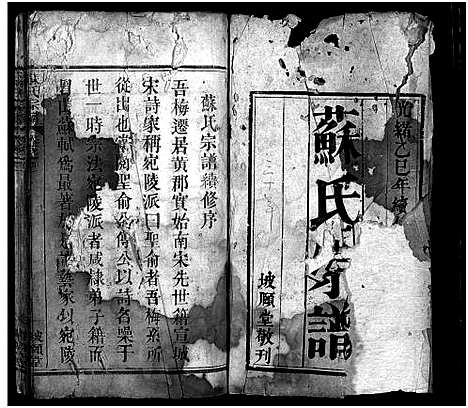 光緒乙巳年續
蘇氏宗譜
坡願堂敬刊
蘇氏宗譜續修序
吾梅遷居黄郡實始南宋先世籍宣城
宋詩家稱宛陵派曰聖俞者吾梅系所
從出也 聖俞 公以詩名噪于
世一時宗法宛陵派者咸隸弟子籍而
眉山蘇軾爲最著 蘇 家以宛陵